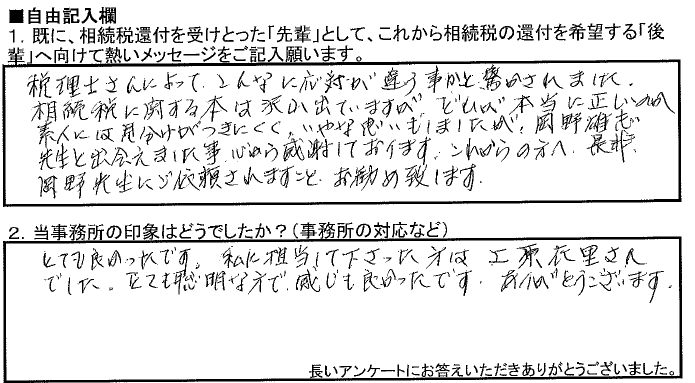 ■自由記入欄
1．既に、相続税還付を受けとった「先輩」として、これから相続税の還付を希望する「後
輩」へ向けて熱いメッセージをご記入願います。
税理士さんによって、こんなに応対が違う事かと驚かされました。
相続税に関する本は沢山出ていますが、どれが本当に正しいのか
素人には見分けがつきにくく、いやな思いもしましたが、岡野雄志
先生と出会えました事、心から感謝しております。これからの方へ、是非、
岡野先生にご依頼されますこと、お勧め致します。
2．当事務所の印象はどうでしたか？（事務所の対応など）
とても良かったです。私に担当して下さった方は 工原衣里さん
でした。とても聡明な方で、感じも良かったです。ありがとうございます。
長いアンケートにお答えいただきありがとうございました。